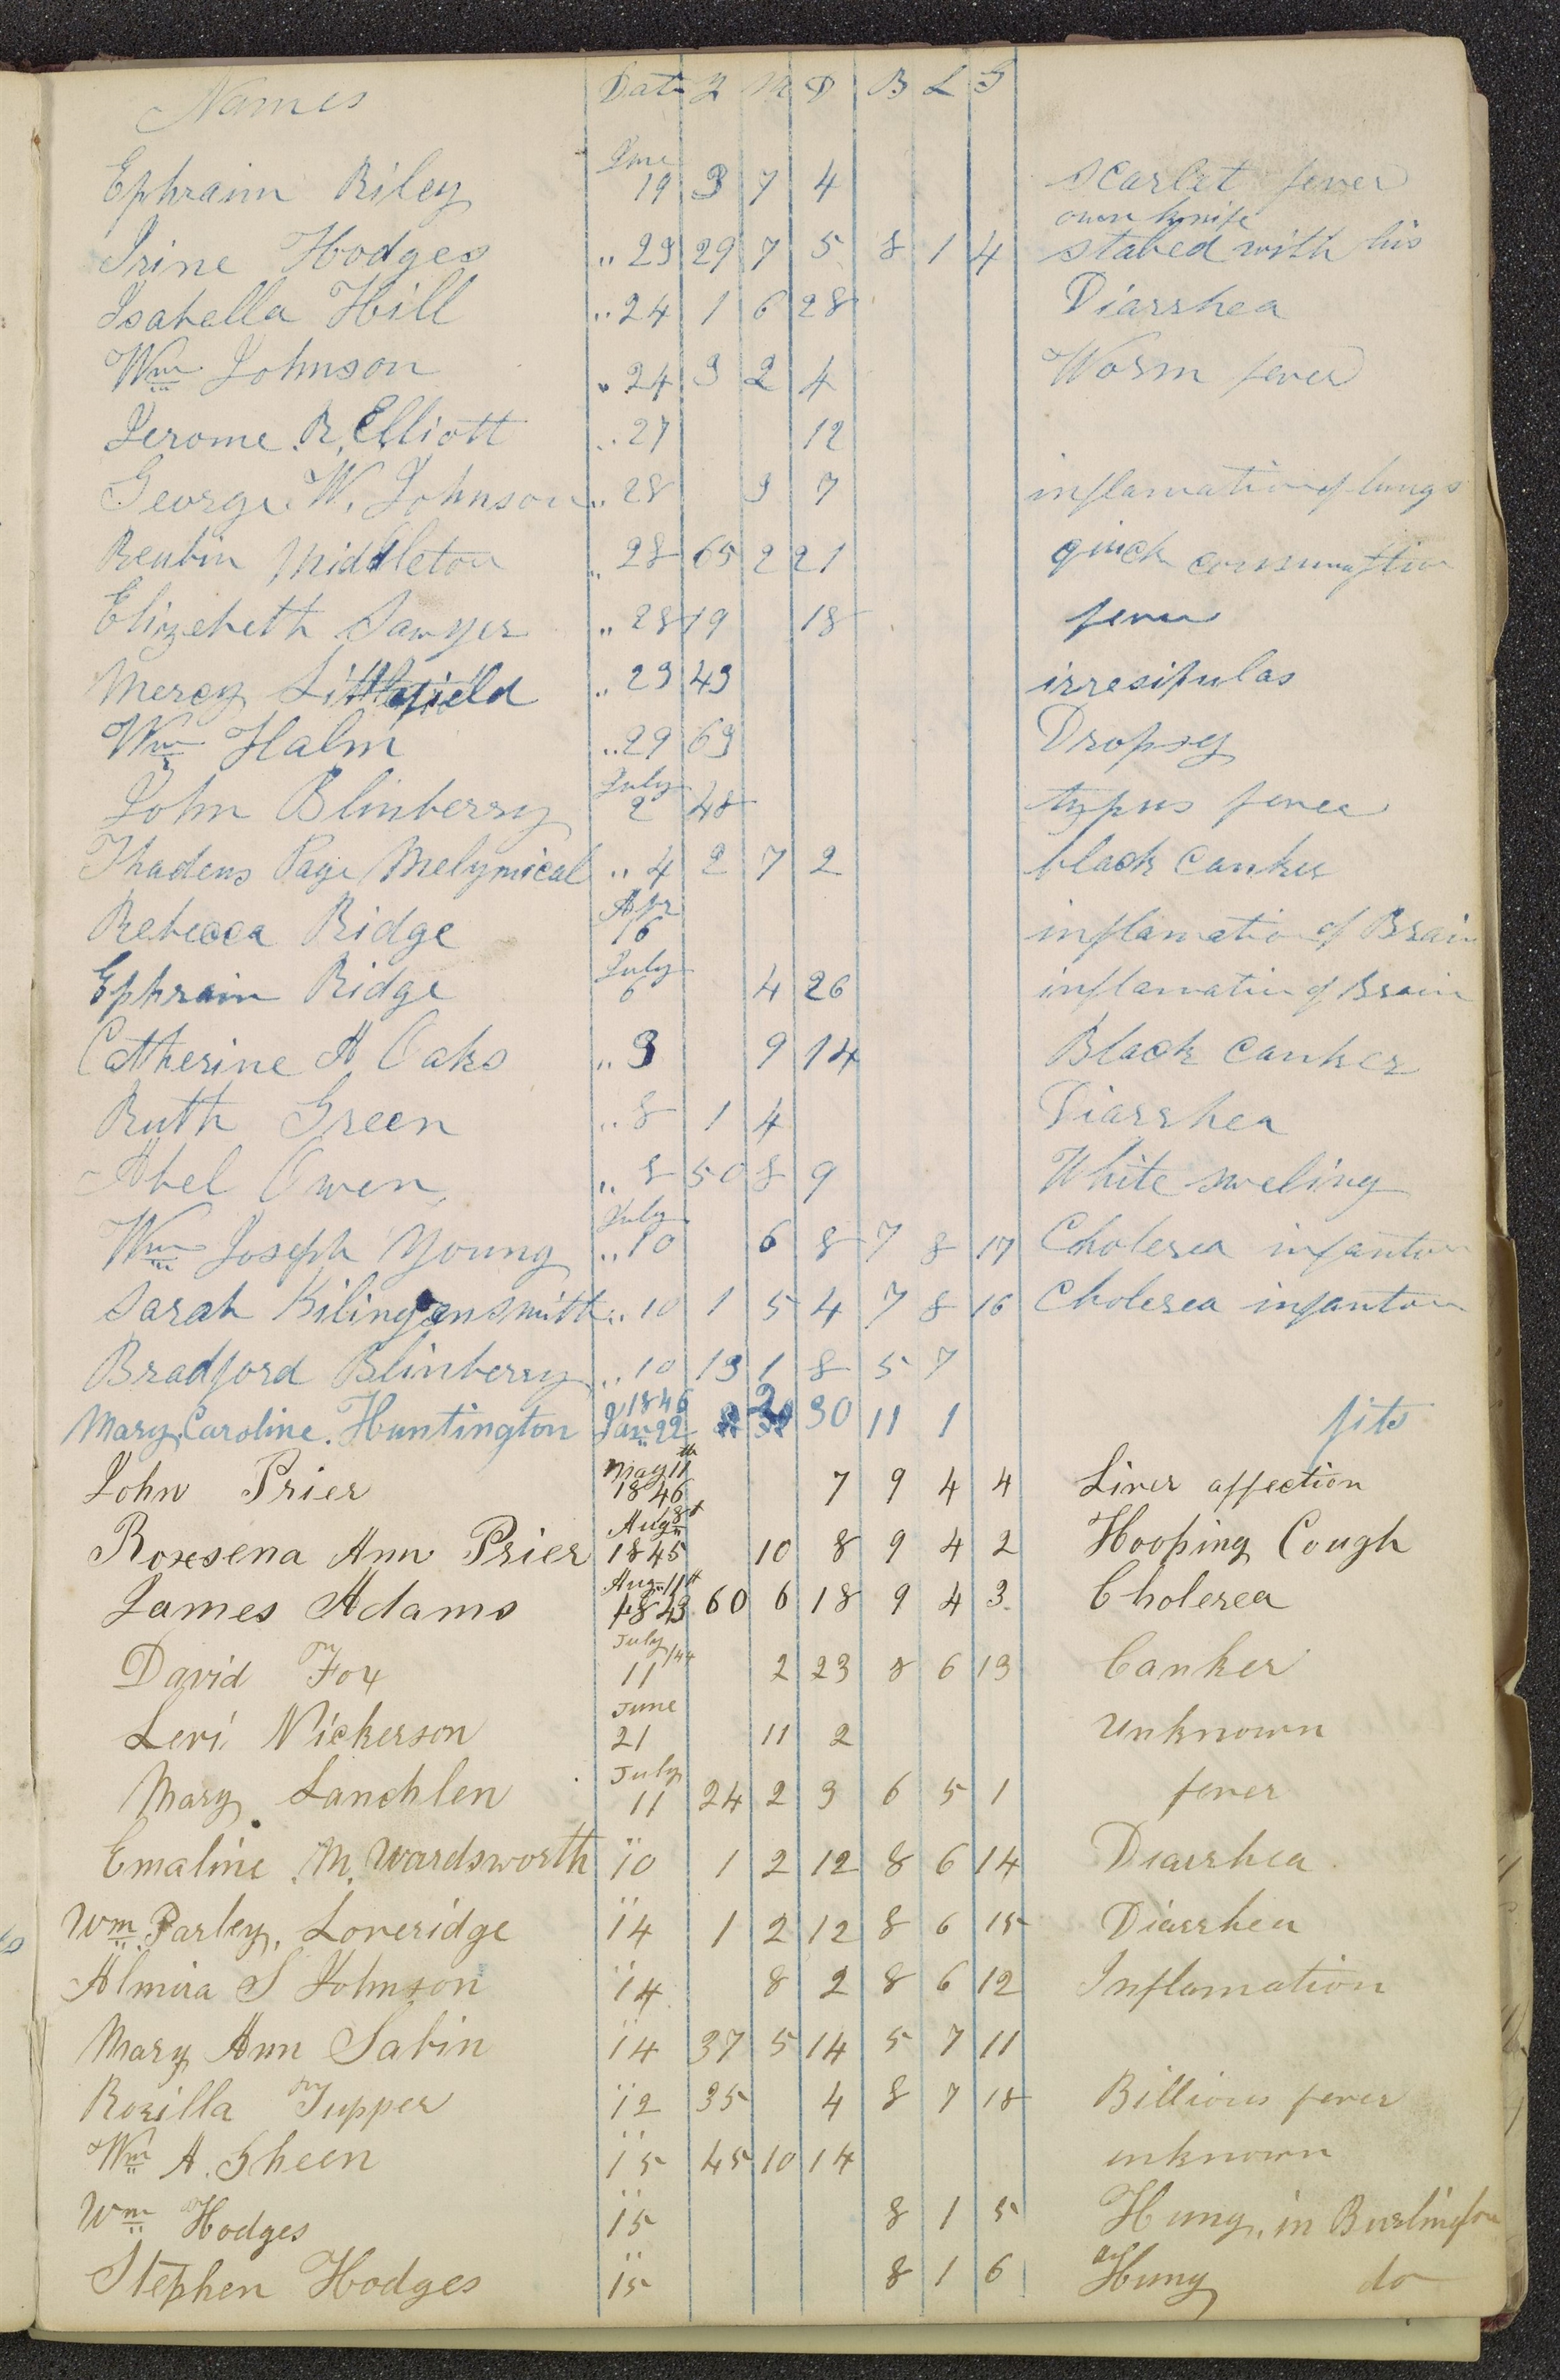 Names Date Y M D B L G
June
Ephraim Riley 19 3 7 4 Scarlet fever
own knife
Irine Hodges " 23 29 7 5 8 1 4 stabed with his
Isabella Hill " 24 1 6 28 Diarrhea
Wm Johnson " 24 3 2 4 Worm fever
Jerome R. Elliott " 27 12
George W. Johnson " 28 3 7 inflamation of lungs
Reubin Middleton " 28 65 2 21 quick consumption
Elizebeth Sawyer " 28 19 18 fever
Mercy Littlefield " 29 49 irresipulas
Wm Halm " 29 63 Dropsy
July
John Blinberry 2 48 typus fever
Thadeus Page Melymical " 4 2 7 2 black canker
Apr
Rebecca Ridge 16 inflamation of Brain
July
Ephraim Ridge 6 4 26 inflamation of Brain
Catherine A Oaks " 3 9 14 Black Canker
Ruth Green " 8 1 4 Diarrhea
Abel Owen, " 8 50 8 9 White sweling
July
Wm Joseph Young " 10 6 8 7 8 17 Cholerea infantum
Sarah Kilingensmith " 10 1 5 4 7 8 16 Cholerea infantum
Bradford Blinberry " 10 13 1 8 5 7
1846
Mary Caroline. Huntington Jan 22 2 30 11 1 fits
May 11th
John Prier 1846 7 9 4 4 Liver affection
Aug 8t
Roxsena Ann Prier 1845 10 8 9 4 2 Hooping Cough
Aug 11t
James Adams 1843 60 6 18 9 4 3 Cholerea
July /44
David Fox 11 2 23 8 6 13 Canker
June
Levi Nickerson 21 11 2 Unknown
July
Mary Lanchlen 11 24 2 3 6 5 1 fever
Emaline M. Wardsworth " 10 1 2 12 8 6 14 Diarrhea
Wm Parley, Loveridge " 14 1 2 12 8 6 15 Diarrhea
Almira S Johnson " 14 8 2 8 6 12 Inflamation
Mary Ann Sabin " 14 37 5 14 5 7 11
Rozilla Tupper " 12 35 4 8 7 18 Billious fever
Wm A. Sheen " 15 45 10 14 unknown
Wm Hodges " 15 8 1 5 Hung, in Burlington
Stephen Hodges " 15 8 1 6 Hung do